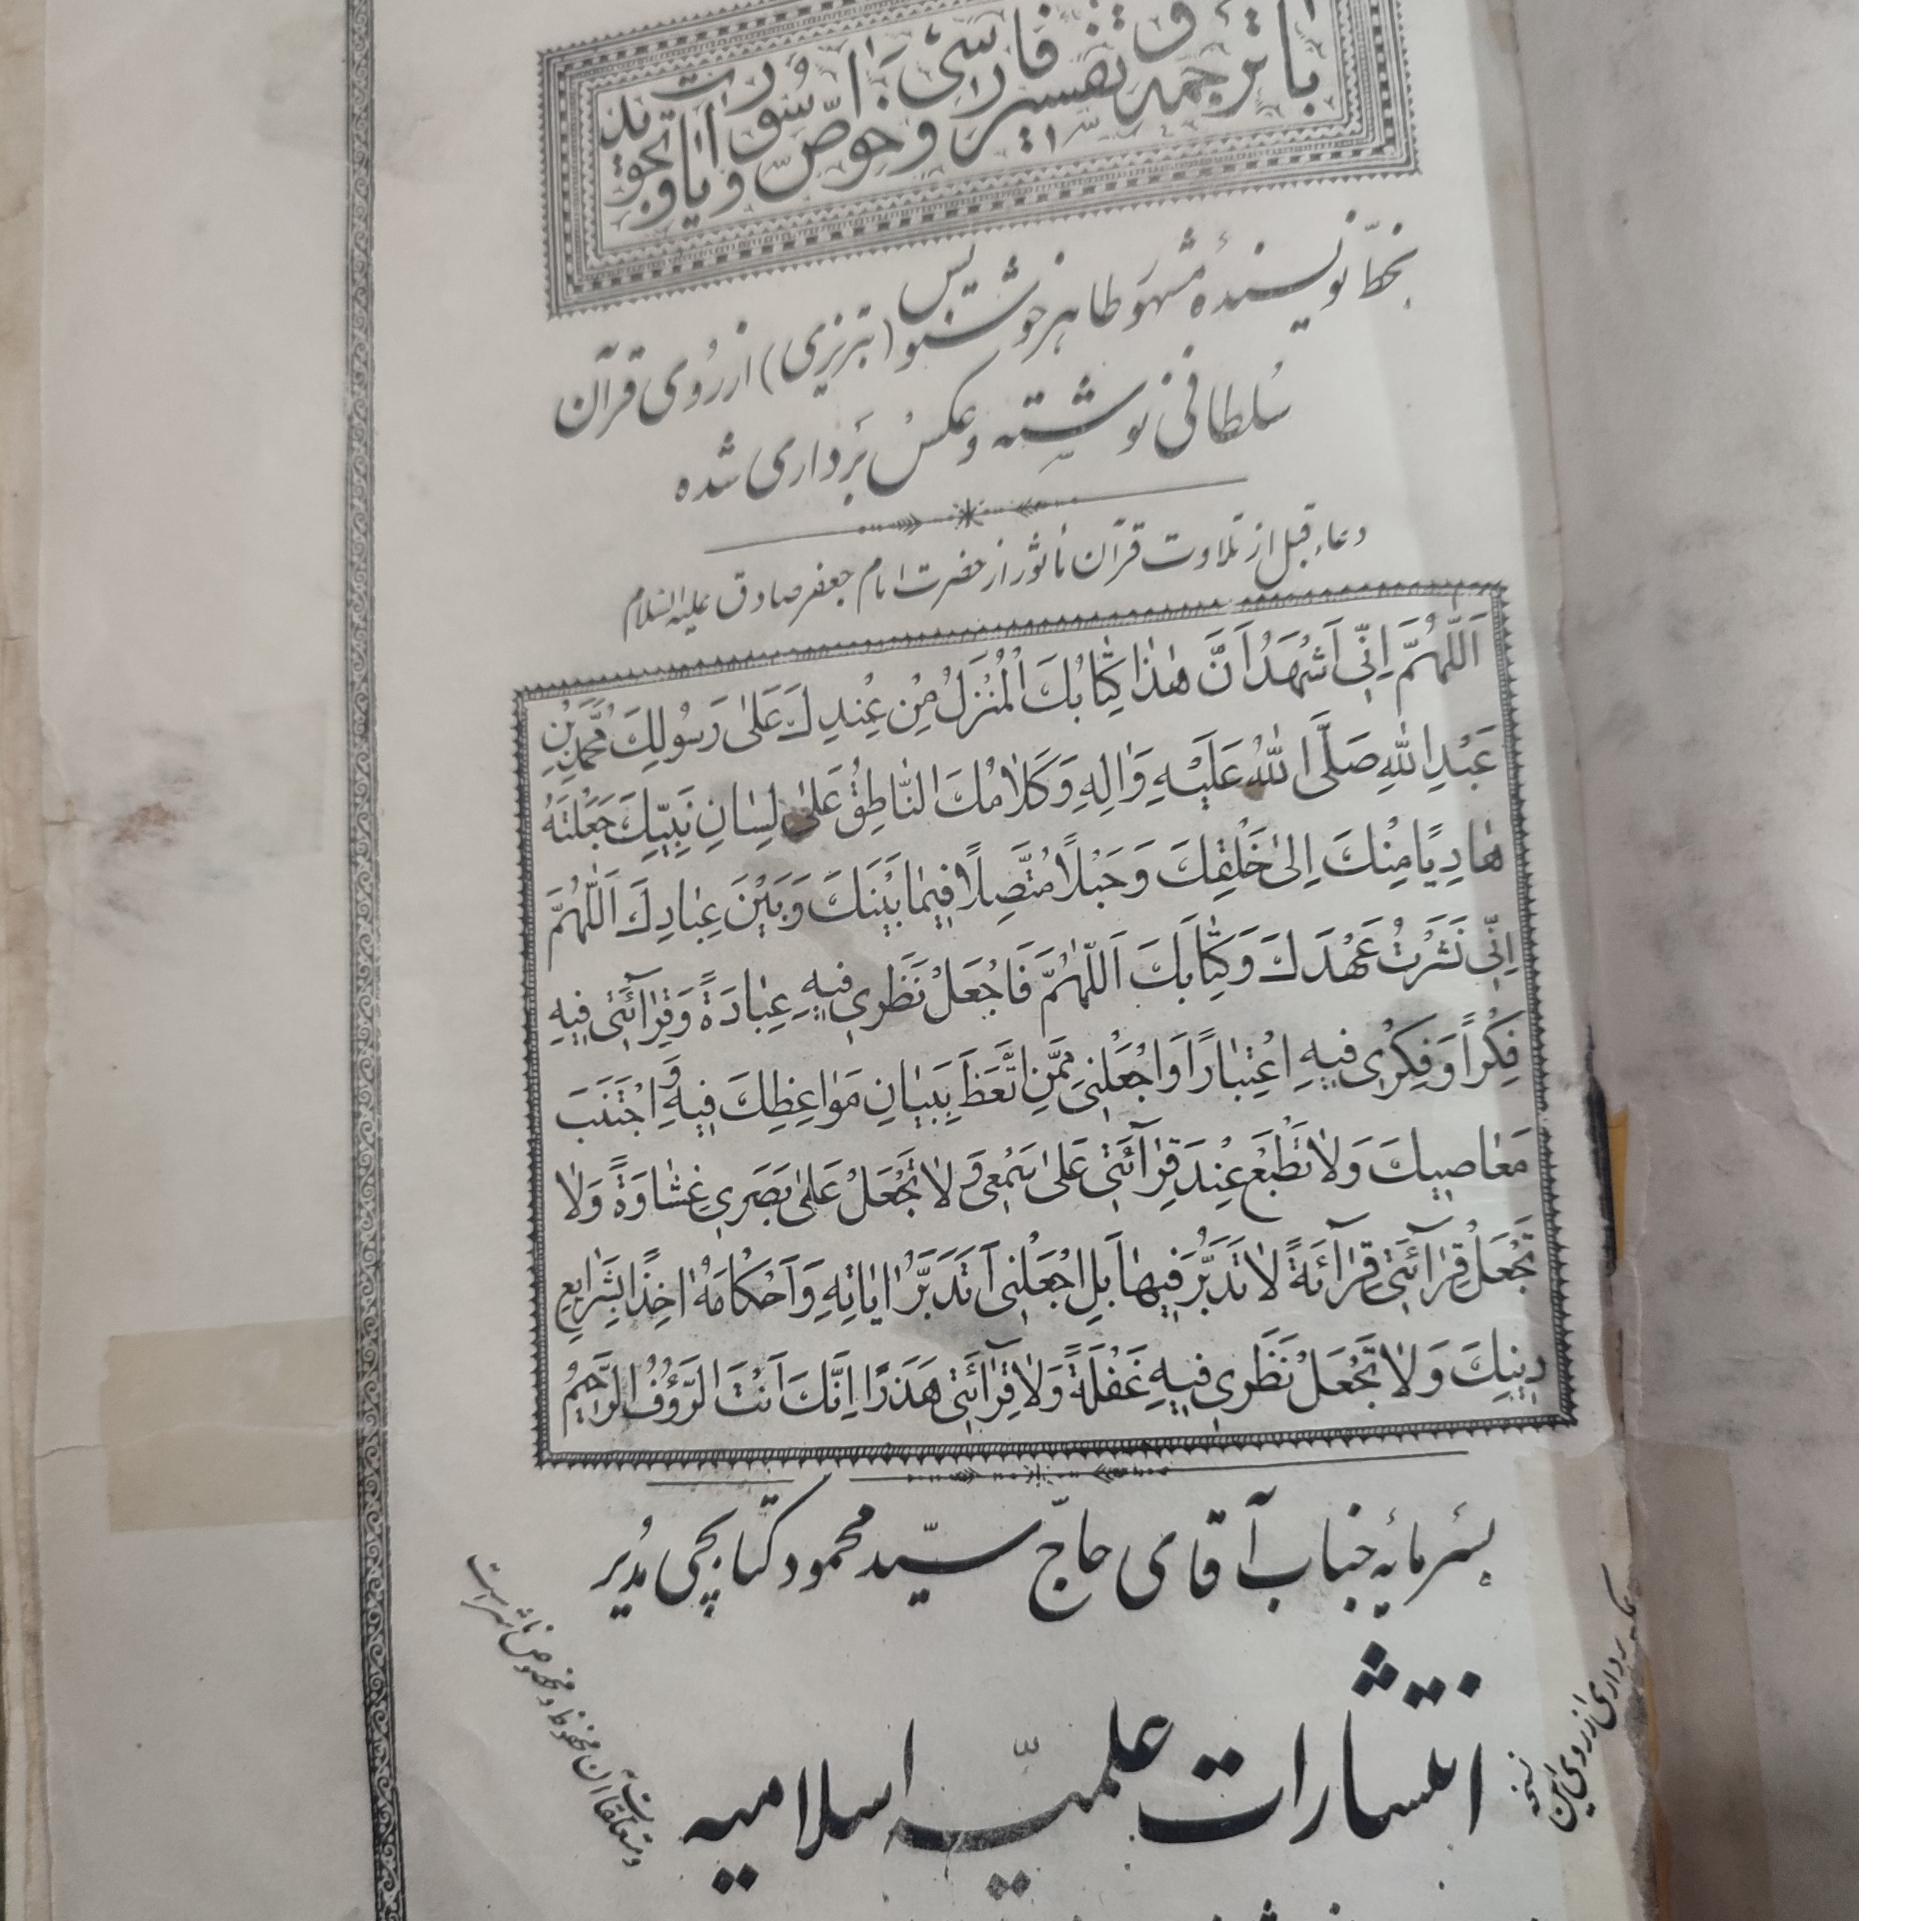 با ترجمه و تفسیر فارسی
و خواصّ سور و آیات و تجوید
بخطّ نویسندهٔ مشهور طاهر خوشنویس (تبریزی) از رُوی قرآن
سُلطانی نوشته و عکس بَرداری شده
دعاء قبل از تلاوت قرآن مأثور از حضرت امام جعفر صادق علیه السلام
اَللّٰهُمَّ اِنّی اَشْهَدُ اَنَّ هٰذا کِتٰابُکَ الْمُنْزَلُ مِنْ عِنْدِکَ عَلیٰ رَسُولِکَ مُحَمَّدِ بْنِ
عَبْدِ اللّٰهِ صَلَّی اللّٰهُ عَلَیْهِ وَ اٰلِهِ وَ کَلٰامُکَ النّٰاطِقُ عَلیٰ لِسٰانِ نَبِیِّکَ جَعَلْتَهُ
هٰادِیًا مِنْکَ اِلیٰ خَلْقِکَ وَ حَبْلًا مُتَّصِلًا فیمٰا بَیْنَکَ وَ بَیْنَ عِبٰادِکَ اَللّٰهُمَّ
اِنّی نَشَرْتُ عَهْدَکَ وَ کِتٰابَکَ اَللّٰهُمَّ فَاجْعَلْ نَظَری فیهِ عِبٰادَةً وَ قِرٰآئَتی فیهِ
فِکْراً وَ فِکْری فیهِ اعْتِبٰارًا وَ اجْعَلْنی مِمَّنِ اتَّعَظَ بِبَیٰانِ مَوٰاعِظِکَ فیهِ وَ اجْتَنَبَ
مَعٰاصیکَ وَلٰا تَطْبَعْ عِنْدَ قِرٰآئَتی عَلیٰ سَمْعی وَ لٰا تَجْعَلْ عَلیٰ بَصَری غِشٰاوَةً وَلٰا
تَجْعَلْ قِرٰآئَتی قِرٰآئَةً لٰا تَدَبُّرَ فیهٰا بَلِ اجْعَلْنی اَتَدَبَّرُ اٰیٰاتِهِ وَ اَحْکٰامَهُ اٰخِذًا بِشَرٰایِعِ
دینِکَ وَلٰا تَجْعَلْ نَظَری فیهِ غَفْلَةً وَلٰا قِرٰآئَتی هَذَرًا اِنَّکَ اَنْتَ الرَّؤُفُ الرَّحیمُ
بسرمایهٔ جناب آقای حاجّ سیّد محمود کتابچی مُدیر
انتشارات علمیّه اسلامیه
عکسبرداری از روی این نسخه
و متعلقات آن محفوظ و مخصوص ناشر است